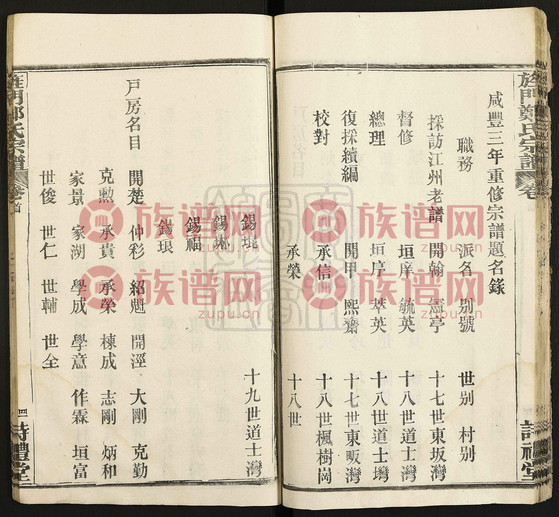 旌門鄭氏宗譜 卷
詩禮堂
咸豐三年重修宗譜題名錄
職務 派名 別號 世別 村別
採訪江州老譜 開翰 憲亭 十七世東坂灣
督修 垣庠 毓英 十八世道士灣
總理 垣序 萃英 十八世道士塆
復採續編 開甲 熙齋 十七世東畈灣
校對 承信 十八世楓樹崗
承榮 十八世
錫琨 十九世道士灣
錫琳
錫福
錫琅
戸房名目 開楚 仲彩 紹魁 開溼 大剛 克勤
克勲 承貴 承榮 棟成 志剛 炳和
家景 家湖 學成 學意 作霖 垣富
世俊 世仁 世輔 世全
旌門鄭氏宗譜 卷首
四 詩禮堂
族谱网
zupu.cn